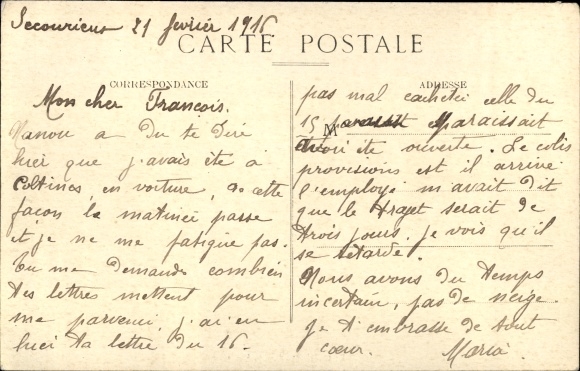 Secourieux 21 fevrier 1916
CARTE POSTALE
CORRESPONDANCE
Mon cher Francois.
Nanou a du te dire
hier que j'avais été a
Coltines en voiture, de cette
façon la matinée passe
et je ne me fatigue pas.
Tu me demande combien
tes lettres mettent pour
me parvenir, j'ai eu
hier ta lettre du 16.
ADRESSE
pas mal cachetée celle du
15 M paraissait
avoir été ouverte. Le colis
provisions est il arrivé
l'employé m'avait dit
que le trajet serait de
trois jours. je vois qu'il
se retarde.
Nous avons du temps
incertain, pas de neige.
Je t'embrasse de tout
cœur. Maria